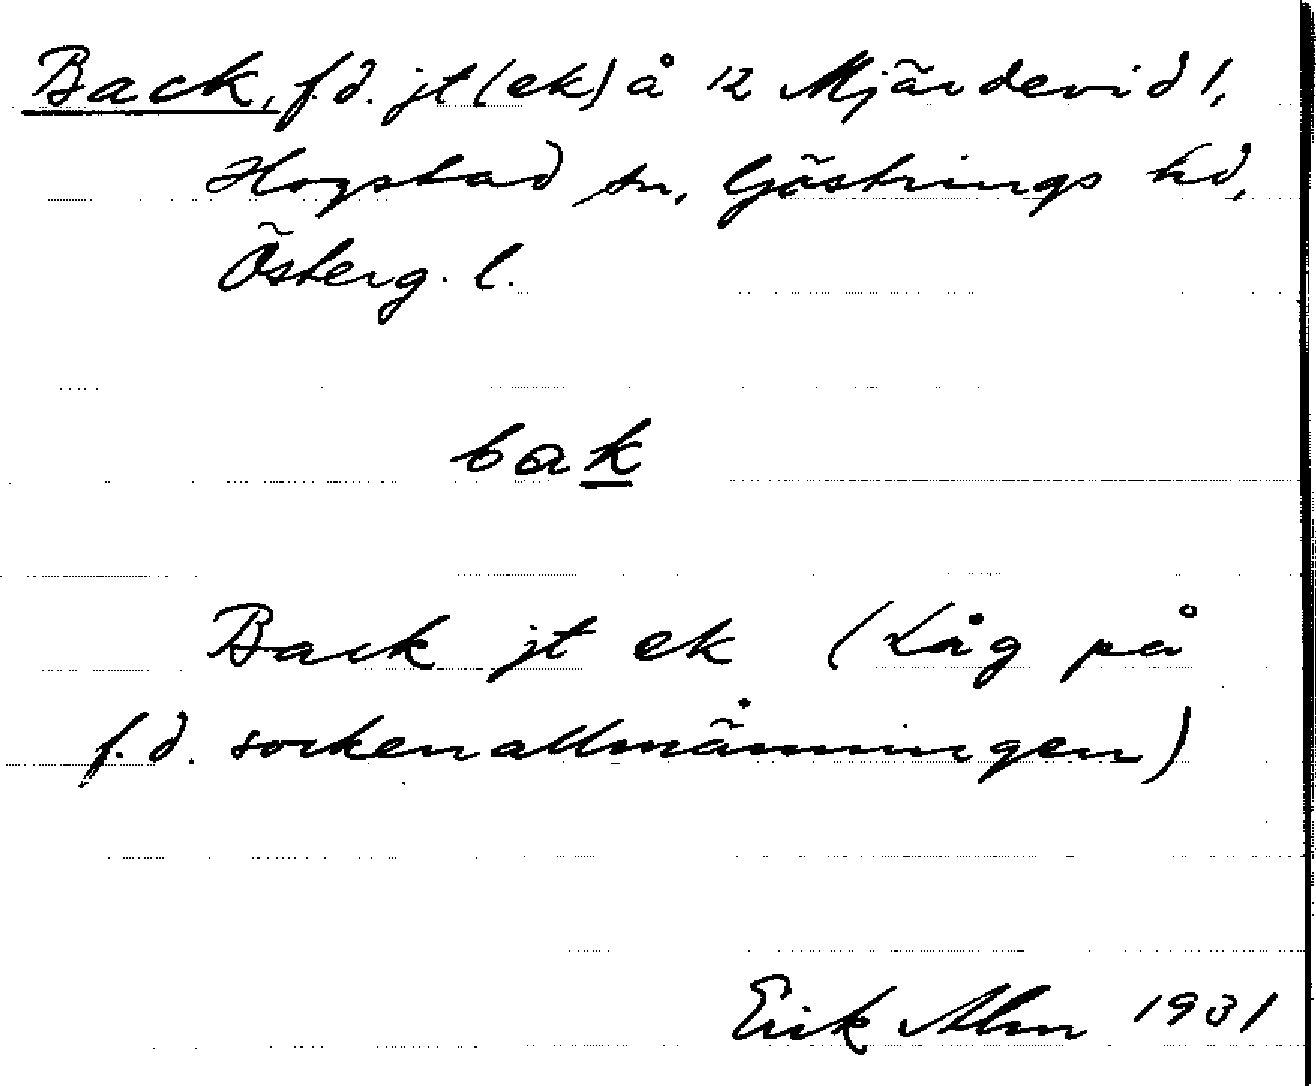 Back, f.d. jt (ek) å 12 Mjärdevid 1,
Hogstad sn, Göstrings hd,
Österg. l.
bak
Back jt ek (Låg på
f.d. sockenallmänningen)
Erik Alm 1931